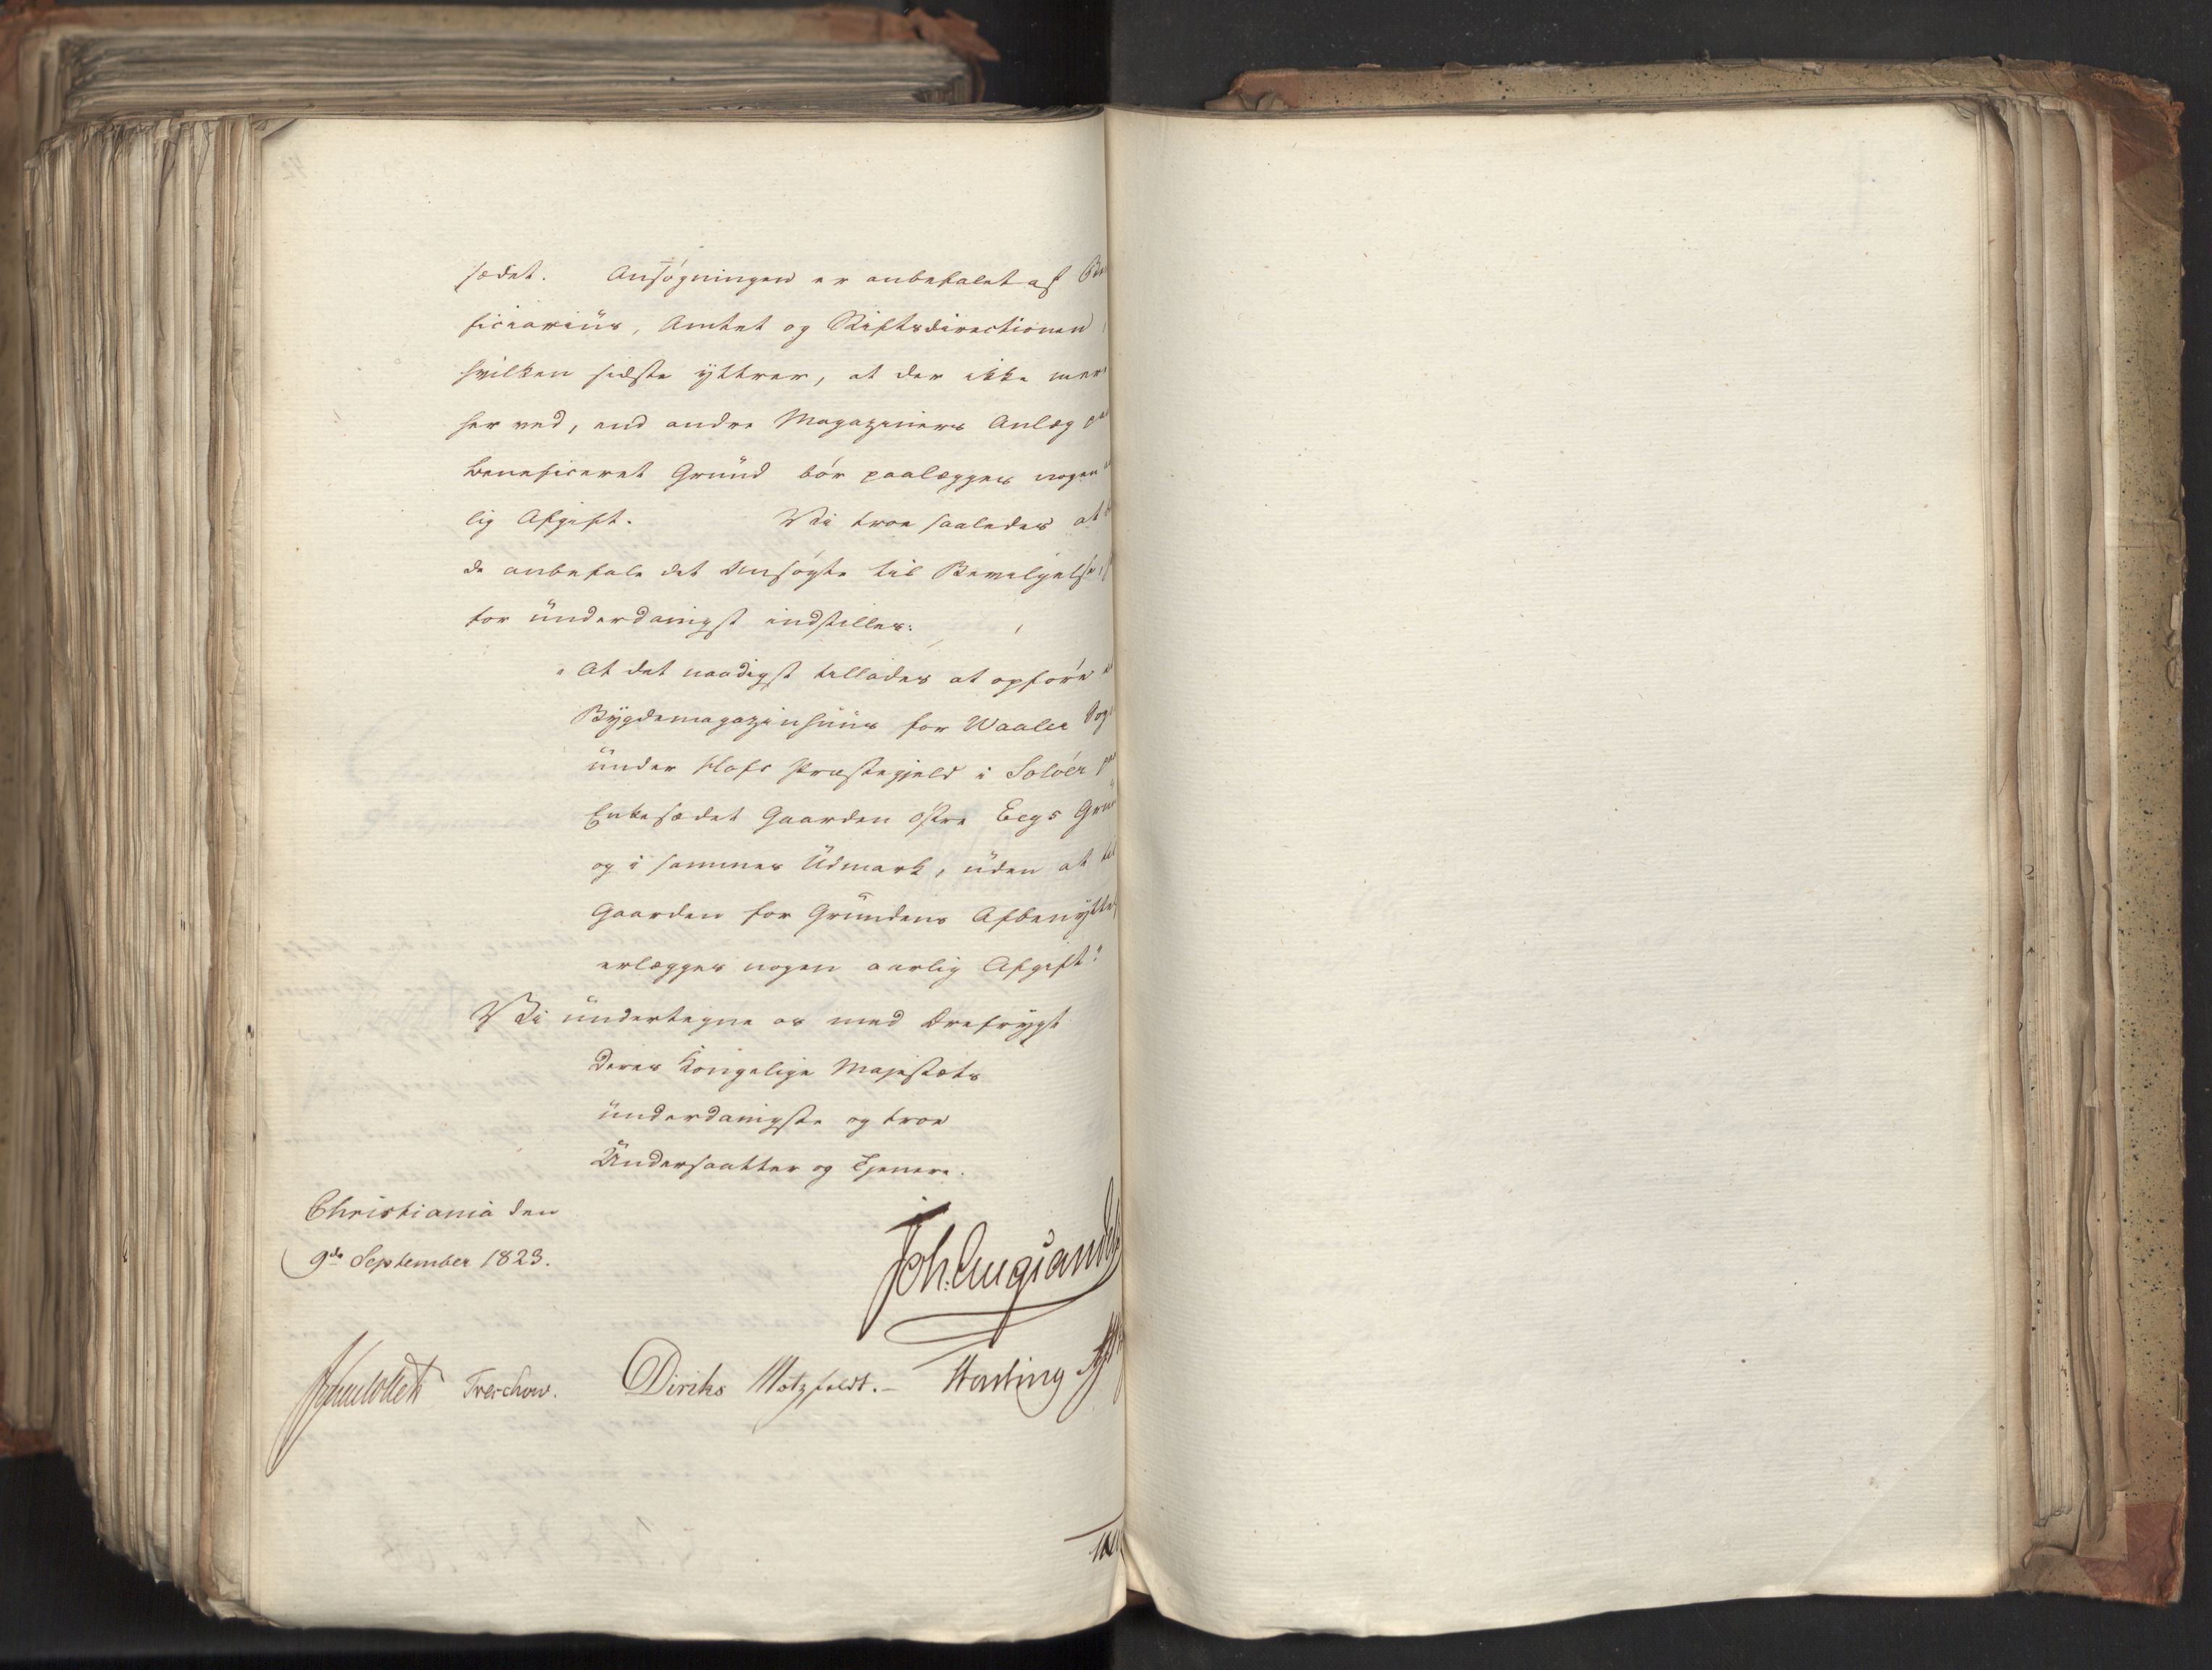 sædet. Ansøgningen er anbefalet af Be
ficiarius, Amtet og Stiftsdirectionen
hvilken sidste yttrer, at der ikke meer
her ved, end andre Magaziners Anlæg pa
beneficeret Grund bör paalægges nogen
lig Afgift. Vi troe saaledes at
de anbefale det Ansøgte til Bevilgelse,
for underdanigst indstilles:
"At det naadigst tillades at opföre
Bygdemagazinhuus for Waaler Sog
under Hofs Præstegjeld i Solöer pa
Enkesædet Gaarden östre Eegs Gru
og i sammes Udmark, uden at til
Gaarden for Grundens Afbenytte
erlægges nogen aarlig Afgift."
Vi undertegne os med Ærefrygt
Deres Kongelige Majestæts
underdanigste og troe
Undersaatter og Tjenere.
Christiania den
9de September 1823.
Joh: Aug: Sand
JCollett Treschow. Diriks Motzfeldt. Hasting